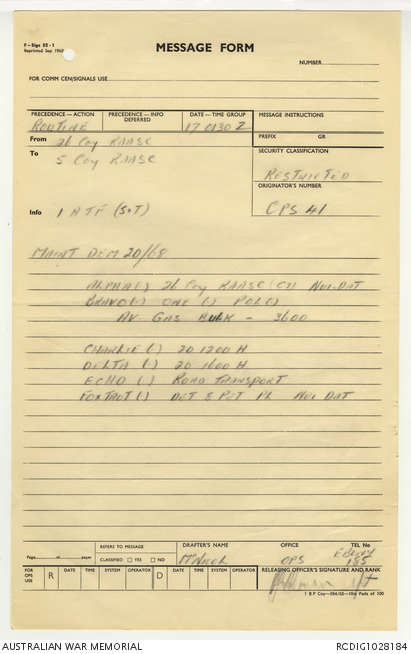 F—Sigs 52-1
Reprinted Sep 1967
MESSAGE FORM
NUMBER
FOR COMM CEN/SIGNALS USE
PRECEDENCE—ACTION
PRECEDENCE—INFO
DEFERRED
DATE—TIME GROUP
MESSAGE INSTRUCTIONS
ROUTINE
17 0130 Z
PREFIX GR
From 26 Coy RAASC
To 5 Coy RAASC
SECURITY CLASSIFICATION
RESTRICTED
ORIGINATOR'S NUMBER
Info 1 ATF (S+T)
OPS 41
MAINT DEM 20/68
ALPHA (-) 26 Coy RAASC (-) NUI-DAT
BRAVO (-) ONE (-) POL (-)
AV GAS BULK - 3600
CHARLIE (-) 20 1200 H
DELTA (-) 20 1600 H
ECHO (-) ROAD TRANSPORT
FOXTROT (-) DET 8 PET PL NUI DAT
Page of pages
REFERS TO MESSAGE
CLASSIFIED YES NO
DRAFTER'S NAME
OFFICE
OPS
TEL No
185
FOR OPS USE
R
DATE
TIME
SYSTEM
OPERATOR
D
DATE
TIME
SYSTEM
OPERATOR
RELEASING OFFICER'S SIGNATURE AND RANK
AUSTRALIAN WAR MEMORIAL
RCDIG1028184